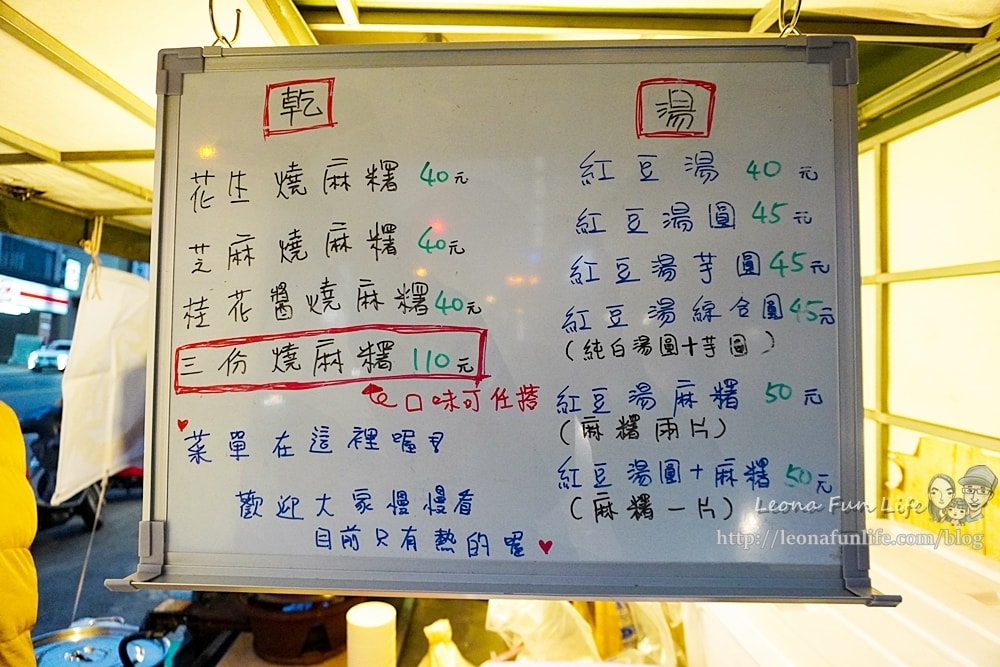 乾
花生燒麻糬 40元
芝麻燒麻糬 40元
桂花醬燒麻糬 40元
三份燒麻糬 110元
口味可任搭
菜單在這裡喔!
歡迎大家慢慢看
目前只有熱的喔
湯
紅豆湯 40元
紅豆湯圓 45元
紅豆湯芋圓 45元
紅豆湯綜合圓 45元
(純白湯圓+芋圓)
紅豆湯麻糬 50元
(麻糬兩片)
紅豆湯圓+麻糬 50元
(麻糬一片)
Leona Fun Life
http://leonafunlife.com/blog